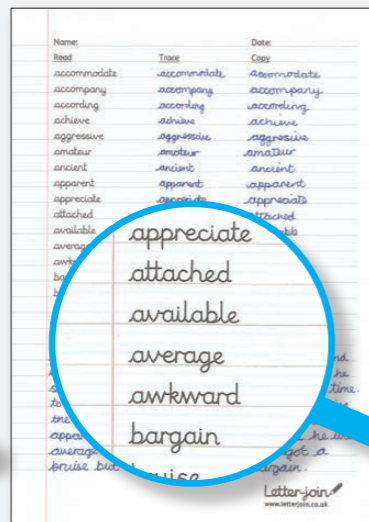 Name: Date:
Read Trace Copy
accommodate accommodate accomodate
accompany accompany accompany
according according according
achieve achieve achieve
aggressive aggressive aggresive
amateur amateur amateur
ancient ancient ancient
apparent apparent apparent
appreciate appreciate appreciate
attached attached
available
average
appreciate
attached
available
average
awkward
bargain
bruise
time.
the
average got a
bruise but
Letter-join
www.letterjoin.co.uk